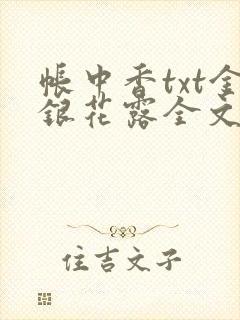 帐中香txt金
银花露全文
住吉文子